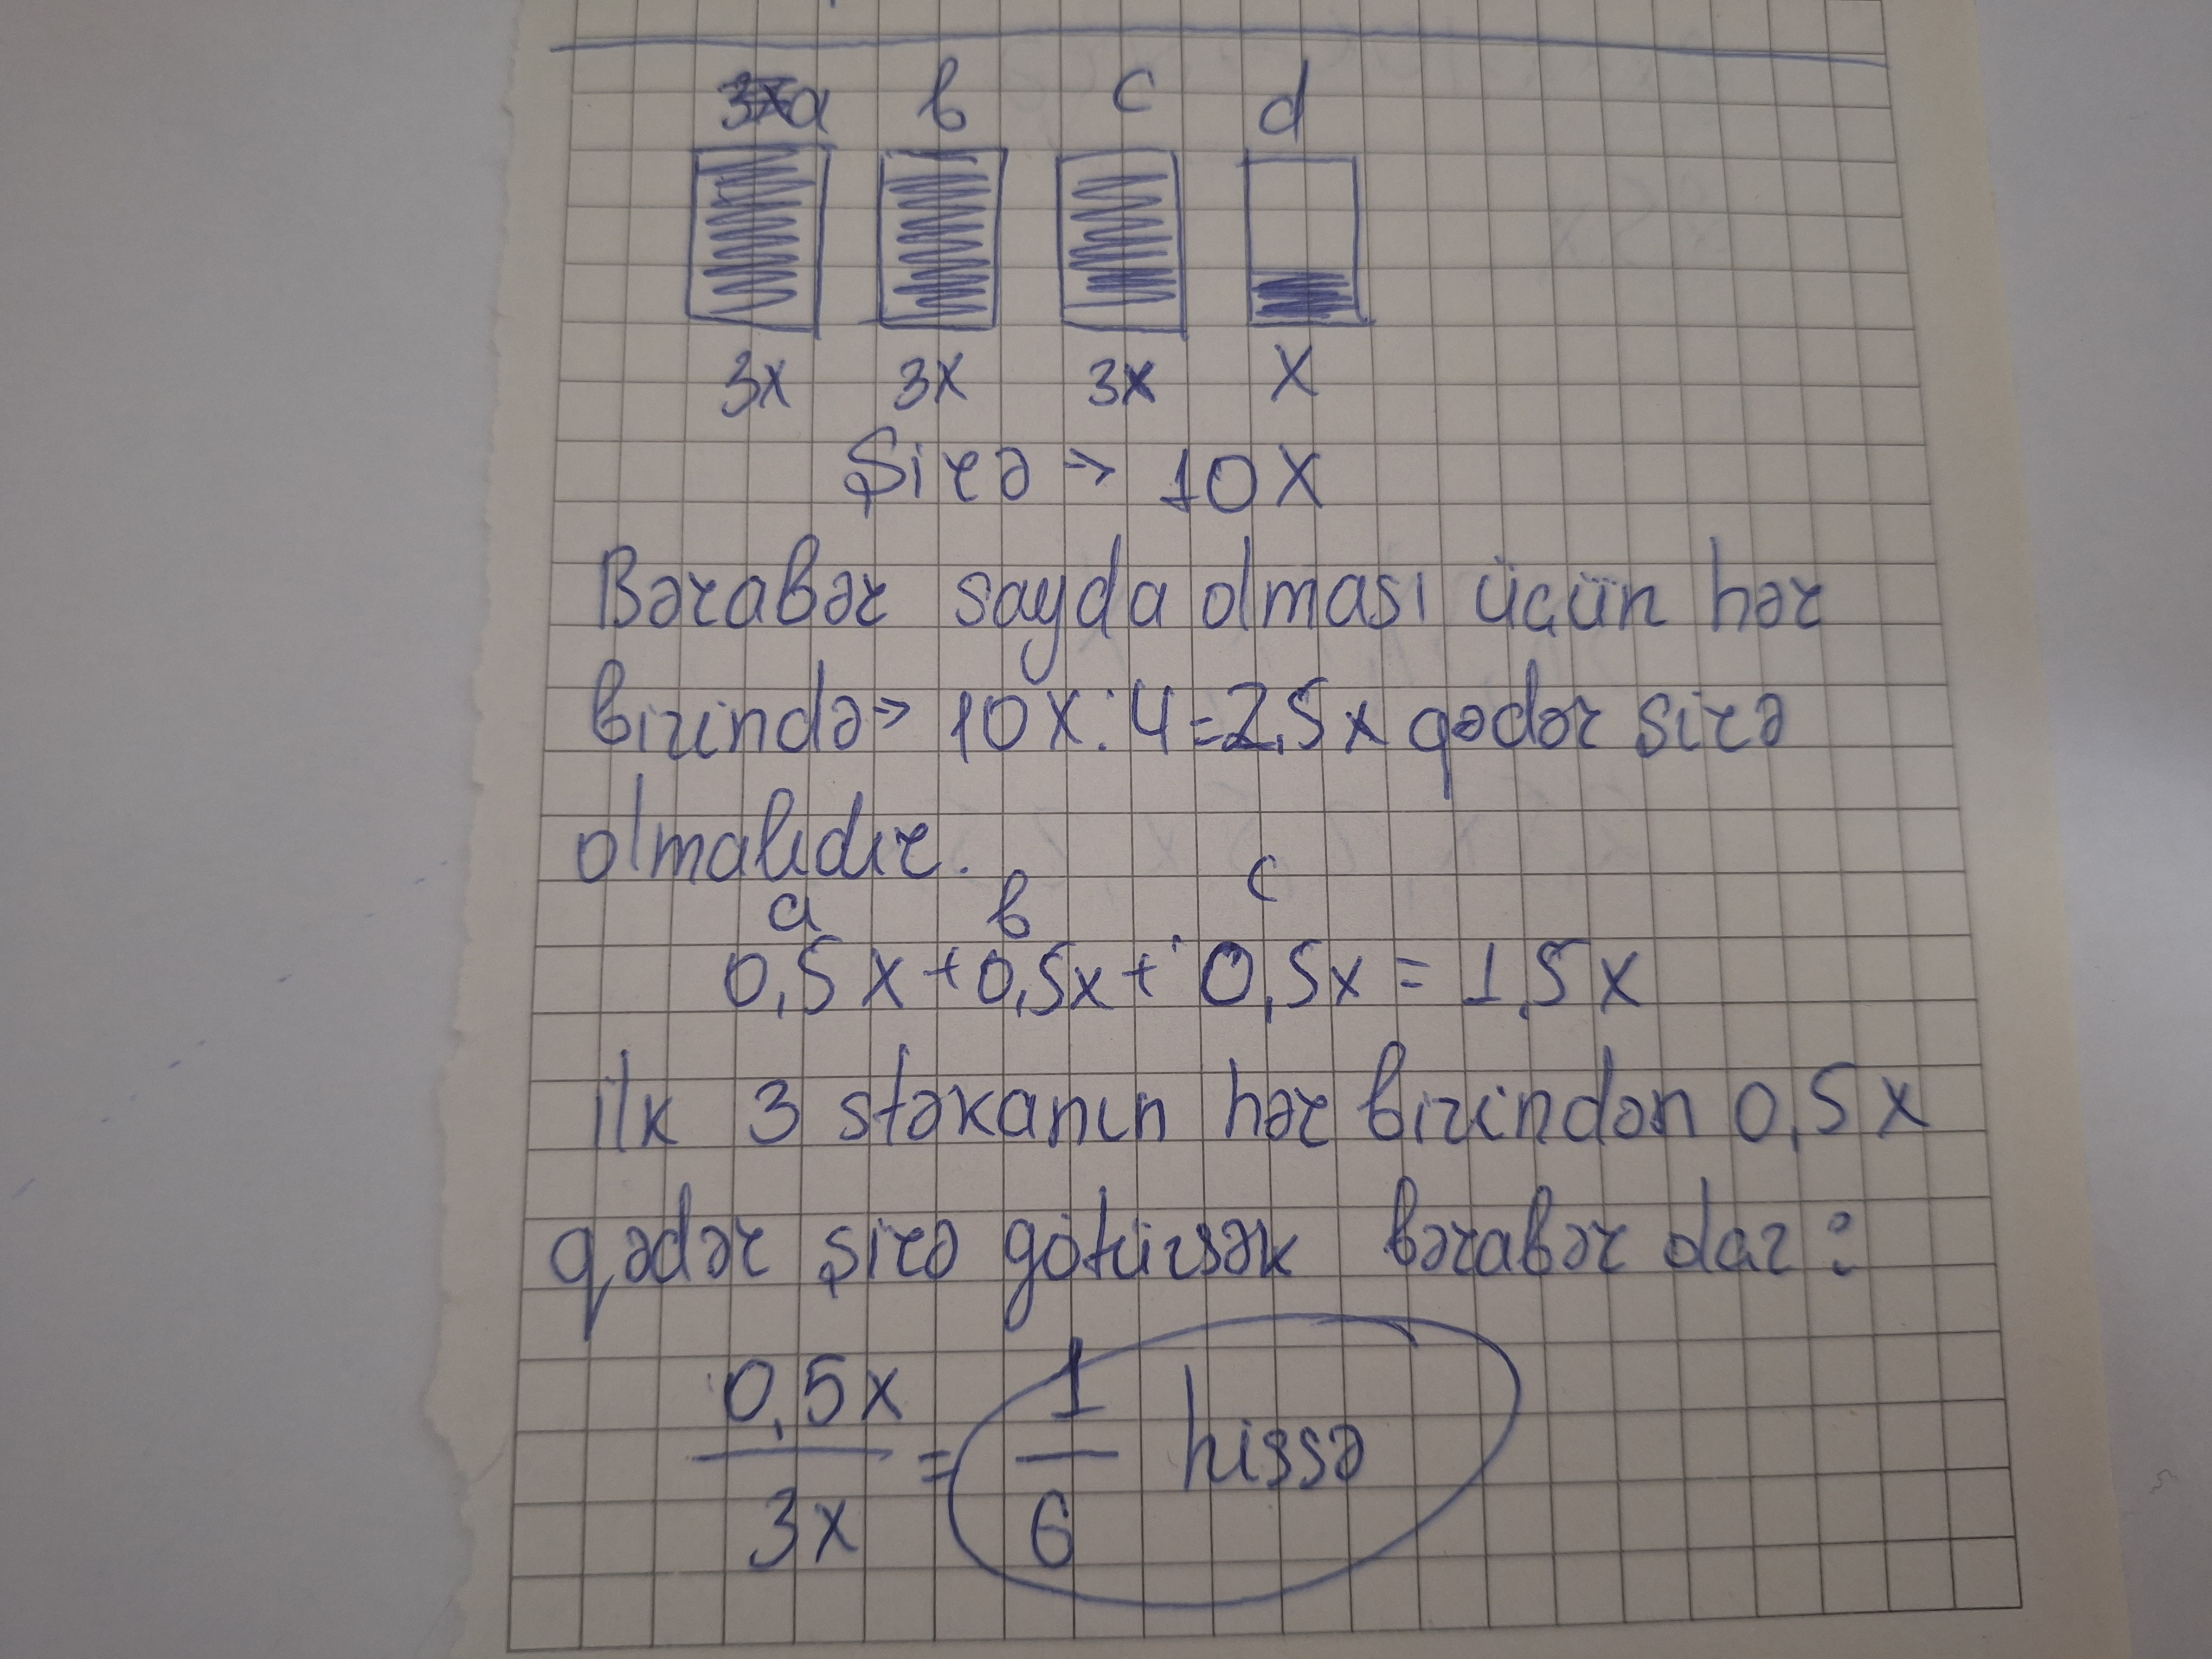 a b c d
3x 3x 3x x
Şirə → 10x
Bərabər sayda olması üçün hər
birində → 10x:4=2,5x qədər sirə
olmalıdır.
a b c
0,5x+0,5x+0,5x=1,5x
ilk 3 stəkanın hər birindən 0,5x
qədər şirə götürsək bərabər olar:
0,5x/3x = 1/6 hissə